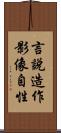 言説造作
影像自性